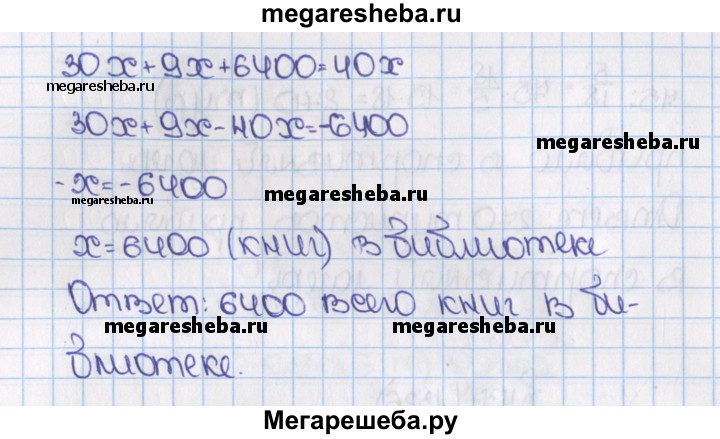 megaresheba.ru
30x+9x+6400=40x
megaresheba.ru
30x+9x-40x=-6400
megaresheba.ru
-x=-6400
megaresheba.ru
megaresheba.ru
x=6400 (книг) в библиотеке
Ответ: 6400 всего книг в би-
megaresheba.ru
megaresheba.ru
блиотеке.
Мегарешеба.ру